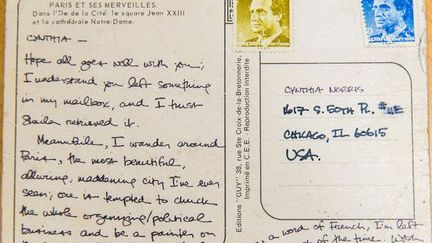 PARIS ET SES MERVEILLES.
Dans l'Île de la Cité, le square Jean XXIII
et la cathédrale Notre-Dame.
CYNTHIA —
Hope all goes well with you;
I understand you left something
in my mailbox, and I trust
retrieved it.
Meanwhile, I wander around
Paris, the most beautiful,
alluring, maddening city I've ever
seen; one is tempted to chuck
the whole organizing/political
business and be a painter on
Editions "GUY" 38, rue Ste Croix-de-la-Bretonnerie,
Imprimé en C.E.E. - Reproduction interdite
CYNTHIA NORRIS
1617 S. 50TH PL. #11E
CHICAGO, IL 60615
USA.
a word of French, I'm left
of the time. With